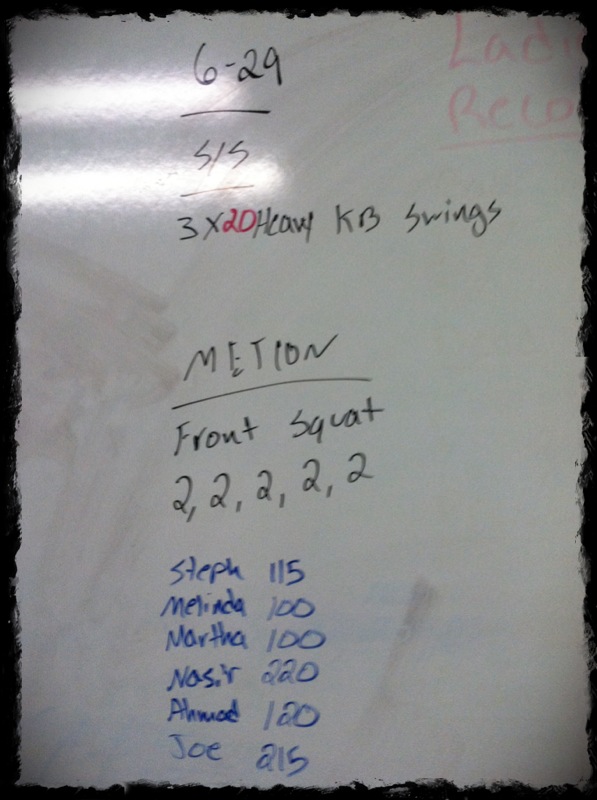 6-29
Ladi
Reco
S/S
3 X 20 Heavy KB Swings
METION
Front Squat
2, 2, 2, 2, 2
Steph 115
Melinda 100
Martha 100
Nasir 220
Ahmad 120
Joe 215